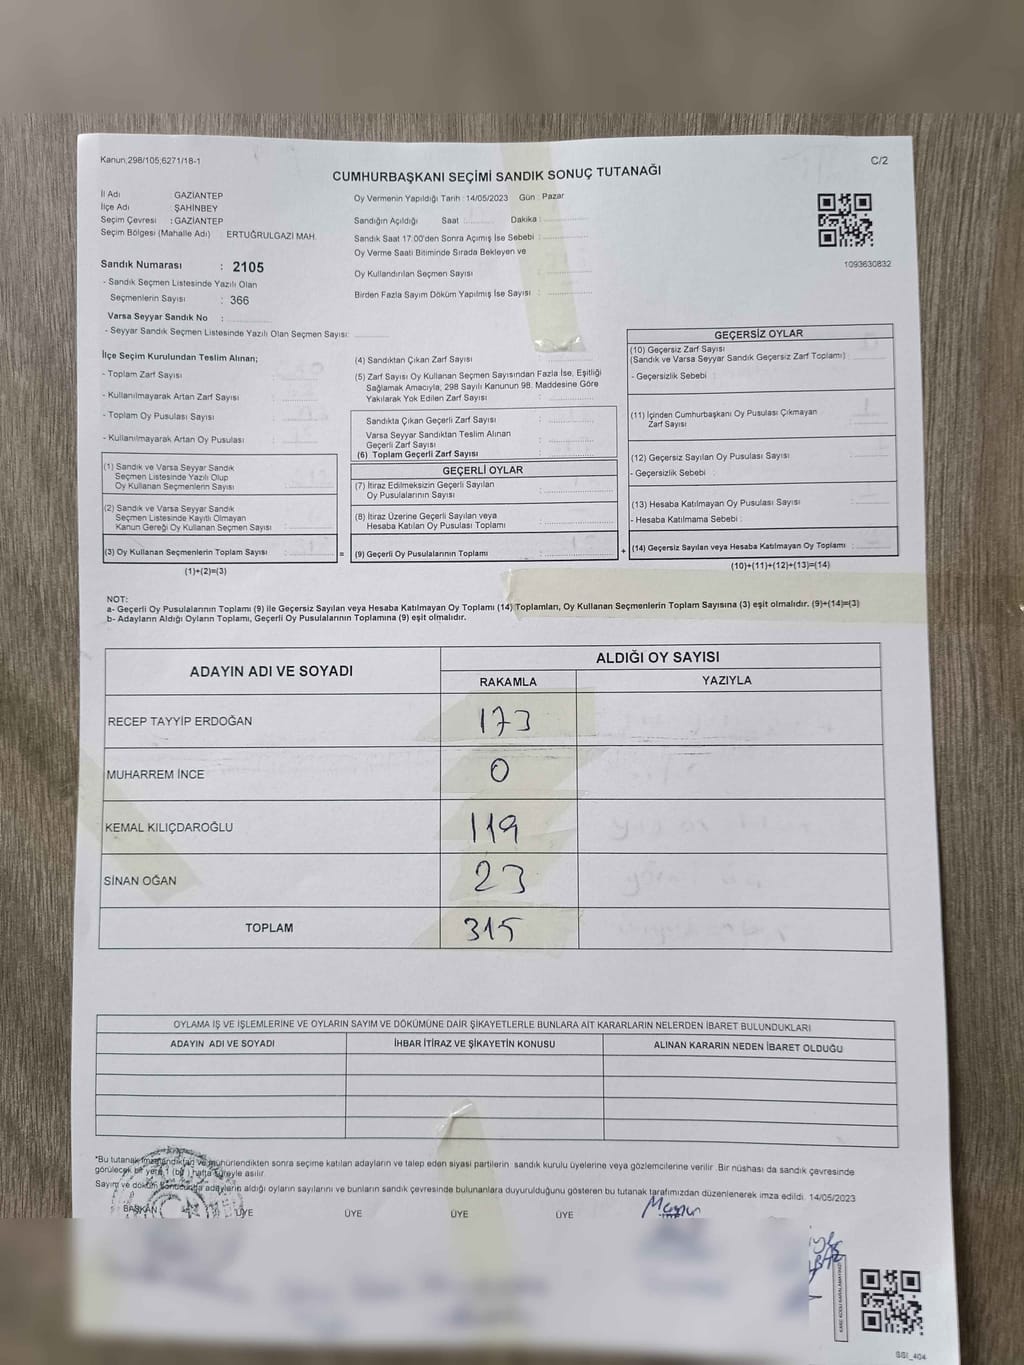 Kanun,298/105;6271/18-1
C/2
CUMHURBAŞKANI SEÇİMİ SANDIK SONUÇ TUTANAĞI
İl Adı GAZİANTEP
İlçe Adı ŞAHİNBEY
Seçim Çevresi : GAZİANTEP
Seçim Bölgesi (Mahalle Adı) ERTUĞRULGAZİ MAH.
Sandık Numarası : 2105
- Sandık Seçmen Listesinde Yazılı Olan
Seçmenlerin Sayısı : 366
Varsa Seyyar Sandık No :
- Seyyar Sandık Seçmen Listesinde Yazılı Olan Seçmen Sayısı:
Oy Vermenin Yapıldığı Tarih : 14/05/2023 Gün : Pazar
Sandığın Açıldığı Saat : Dakika :
Sandık Saat 17:00'den Sonra Açımış İse Sebebi :
Oy Verme Saati Bitiminde Sırada Bekleyen ve
Oy Kullandırılan Seçmen Sayısı
Birden Fazla Sayım Döküm Yapılmış İse Sayısı :
1093630832
İlçe Seçim Kurulundan Teslim Alınan;
- Toplam Zarf Sayısı :
- Kullanılmayarak Artan Zarf Sayısı :
- Toplam Oy Pusulası Sayısı :
- Kullanılmayarak Artan Oy Pusulası :
(1) Sandık ve Varsa Seyyar Sandık
Seçmen Listesinde Yazılı Olup
Oy Kullanan Seçmenlerin Sayısı :
(2) Sandık ve Varsa Seyyar Sandık
Seçmen Listesinde Kayıtlı Olmayan
Kanun Gereği Oy Kullanan Seçmen Sayısı :
(3) Oy Kullanan Seçmenlerin Toplam Sayısı :
(1)+(2)=(3)
=
(4) Sandıktan Çıkan Zarf Sayısı
(5) Zarf Sayısı Oy Kullanan Seçmen Sayısından Fazla İse, Eşitliği
Sağlamak Amacıyla; 298 Sayılı Kanunun 98. Maddesine Göre
Yakılarak Yok Edilen Zarf Sayısı :
Sandıkta Çıkan Geçerli Zarf Sayısı :
Varsa Seyyar Sandıktan Teslim Alınan
Geçerli Zarf Sayısı :
(6) Toplam Geçerli Zarf Sayısı
GEÇERLİ OYLAR
(7) İtiraz Edilmeksizin Geçerli Sayılan
Oy Pusulalarının Sayısı :
(8) İtiraz Üzerine Geçerli Sayılan veya
Hesaba Katılan Oy Pusulası Toplamı :
(9) Geçerli Oy Pusulalarının Toplamı :
+
GEÇERSİZ OYLAR
(10) Geçersiz Zarf Sayısı
(Sandık ve Varsa Seyyar Sandık Geçersiz Zarf Toplamı) :
- Geçersizlik Sebebi :
(11) İçinden Cumhurbaşkanı Oy Pusulası Çıkmayan
Zarf Sayısı :
(12) Geçersiz Sayılan Oy Pusulası Sayısı :
- Geçersizlik Sebebi :
(13) Hesaba Katılmayan Oy Pusulası Sayısı :
- Hesaba Katılmama Sebebi :
(14) Geçersiz Sayılan veya Hesaba Katılmayan Oy Toplamı :
(10)+(11)+(12)+(13)=(14)
NOT:
a- Geçerli Oy Pusulalarının Toplamı (9) ile Geçersiz Sayılan veya Hesaba Katılmayan Oy Toplamı (14) Toplamları, Oy Kullanan Seçmenlerin Toplam Sayısına (3) eşit olmalıdır. (9)+(14)=(3)
b- Adayların Aldığı Oyların Toplamı, Geçerli Oy Pusulalarının Toplamına (9) eşit olmalıdır.
ADAYIN ADI VE SOYADI
ALDIĞI OY SAYISI
RAKAMLA YAZIYLA
RECEP TAYYİP ERDOĞAN 173
MUHARREM İNCE 0
KEMAL KILIÇDAROĞLU 119
SİNAN OĞAN 23
TOPLAM 315
OYLAMA İŞ VE İŞLEMLERİNE VE OYLARIN SAYIM VE DÖKÜMÜNE DAİR ŞİKAYETLERLE BUNLARA AİT KARARLARIN NELERDEN İBARET BULUNDUKLARI
ADAYIN ADI VE SOYADI İHBAR İTİRAZ VE ŞİKAYETİN KONUSU ALINAN KARARIN NEDEN İBARET OLDUĞU
*Bu tutanak imzalandıktan ve mühürlendikten sonra seçime katılan adayların ve talep eden siyasi partilerin sandık kurulu üyelerine veya gözlemcilerine verilir. Bir nüshası da sandık çevresinde
görülecek bir yere 1 (bir) hafta süreyle asılır.
Sayım ve döküm sonucunda adayların aldığı oyların sayılarını ve bunların sandık çevresinde bulunanlara duyurulduğunu gösteren bu tutanak tarafımızdan düzenlenerek imza edildi. 14/05/2023
BAŞKAN ÜYE ÜYE ÜYE ÜYE